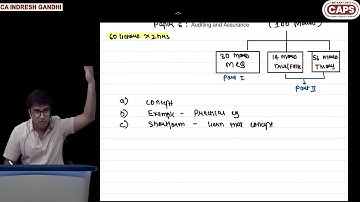 CA INDRESH GANDHI
CAPS
Paper 5: Auditing and Assurance (100 Marks)
60 lectures x 2 hrs
30 Marks MCQ
14 Marks True/False
56 Marks Theory
Part I
Part II
a) Concept
b) Example - Practical eg
c) Shortform - learn that concept